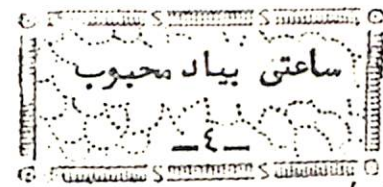 ساعتی بیاد محبوب
—٤—